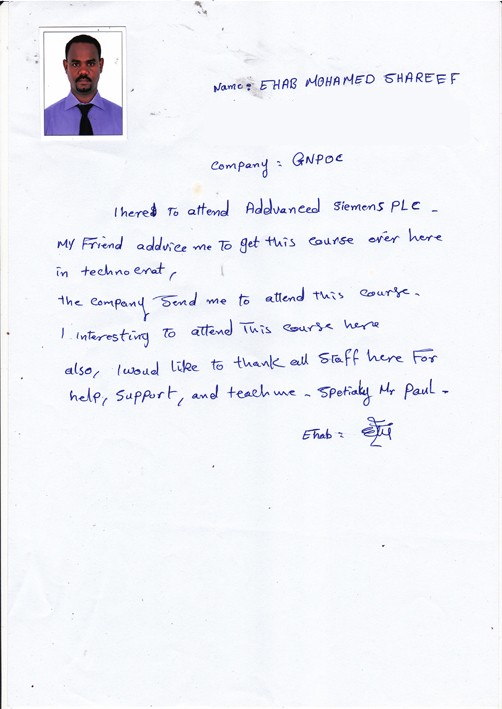 Name: EHAB MOHAMED SHAREEF
Company: GNPOC
I here to attend Addvanced Siemens PLC -
MY Friend addvice me to get this course over here
in technocrat,
the company send me to attend this course.
I interesting to attend this course here
also, I woud like to thank all staff here For
help, Support, and teach me - Spetialy Mr Paul -
Ehab: